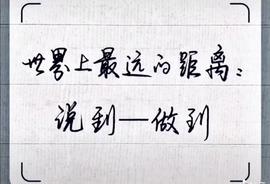 世界上最远的距离：
说到一做到